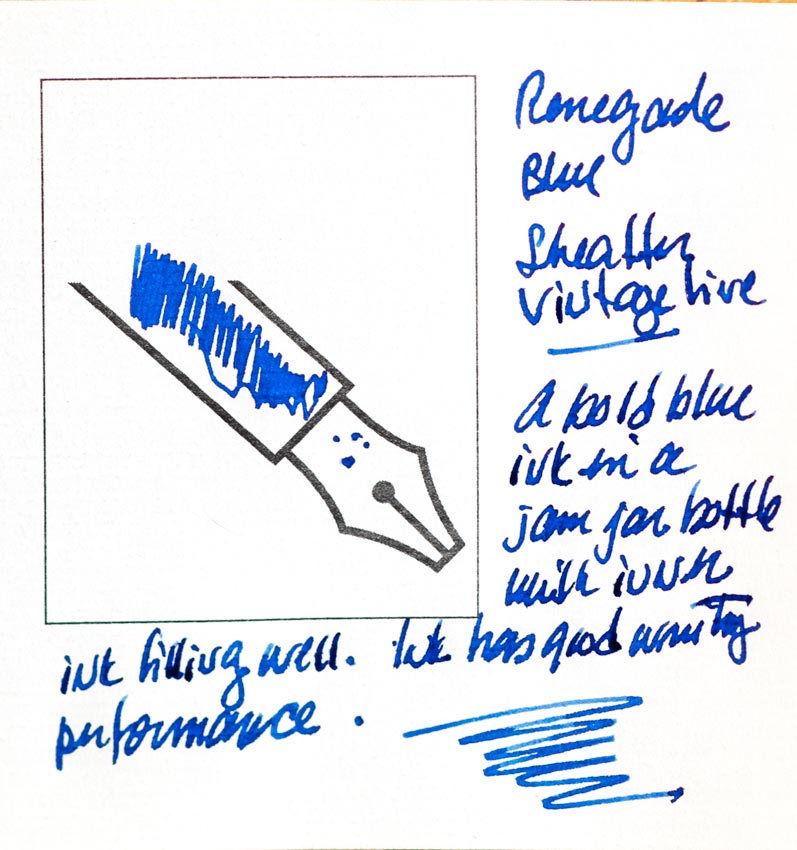 Renegade
Blue
Sheaffer
vintage line
A bold blue
ink in a
jam jar bottle
with inner
ink filling well. Ink has good writing
performance.